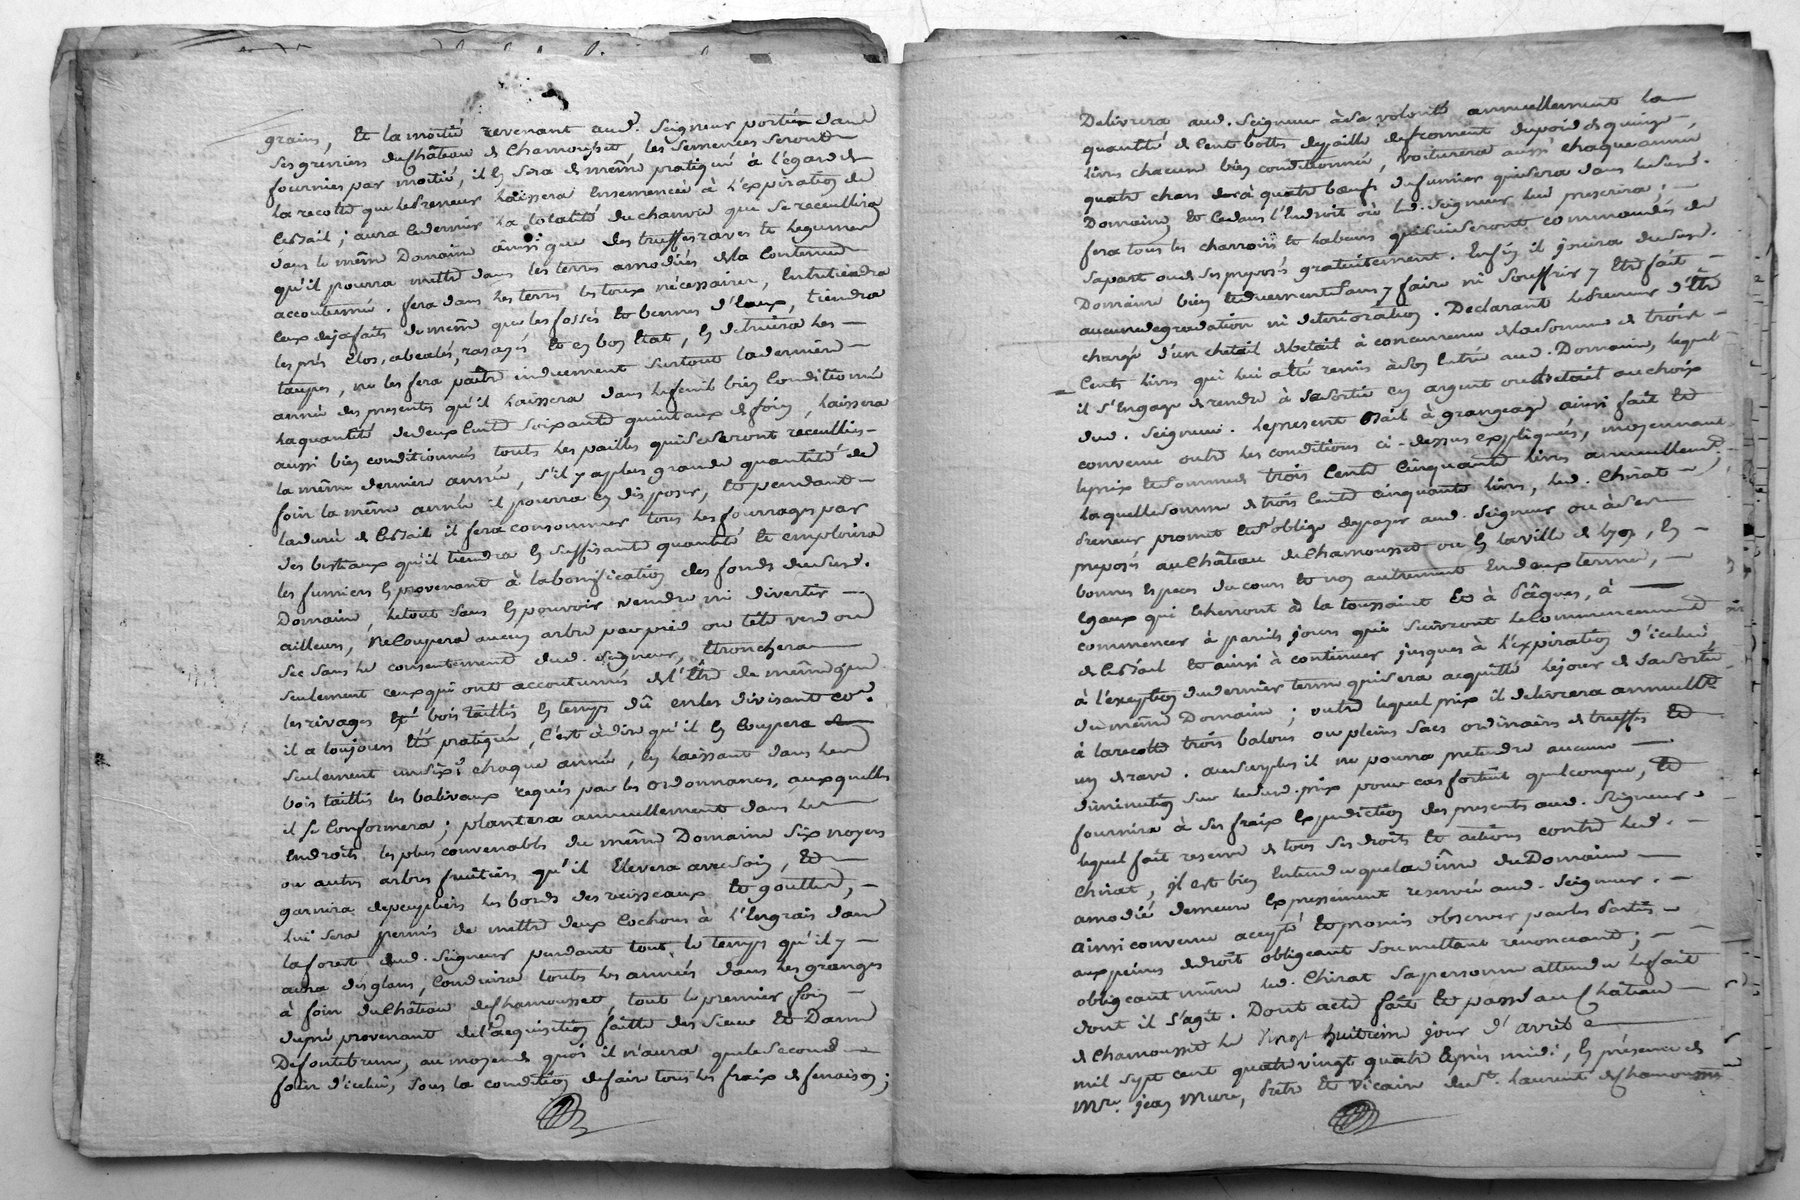 grains, et la moitié revenant aud. Seigneur portée dans
ses greniers du château de Chamousset, les semences seront
fournies par moitié, il en sera de même pratiqué à l'égard de
la recolte que le Preneur laissera ensemencée à l'expiration du
Bail; aura ce dernier la totalité du chanvre qui se recueillira
dans le même Domaine ainsi que des truffes raves et legumes
qu'il pourra mettre dans les terres amodiées de la contenue
accoutumée. fera dans les terres les toux nécessaires, entretiendra
ceux deja faits de même que les fossés et bennes d'eaux, tiendra
les prés clos, abealés, rasayés et en bon état, en detruira les
taupes, ne les fera paître induement surtout la derniere
année des presentes qu'il laissera dans le fenil bien conditionné
la quantité de deux cents soixante quintaux de foin, laissera
aussi bien conditionnés toutes les pailles qui se seront recueillies
la même derniere année, s'il y a plus grande quantité de
foin la même année il pourra en disposer, et pendant
la durée de ce Bail il fera consommer tous les fourrages par
des bestiaux qu'il tiendra en suffisante quantité et emploiera
les fumiers en provenant à la bonification des fonds dud.
Domaine, le tout sans en pouvoir vendre, ni divertir
ailleurs, ne coupera aucun arbre par pied ou tête verd ou
sec sans le consentement dud. seigneur, etronchera
seulement ceux qui ont accoutumés de l'être de même que
les rivages et bois taillis en temps dû en les divisant co.e
il a toujours été pratiqué, c'est à dire qu'il en coupera
seulement un six.e chaque année, en laissant dans les
bois taillis les balivaux requis par les ordonnances, auxquelles
il se conformera; plantera annuellement dans les
endroits les plus convenables du même Domaine six noyers
ou autres arbres fruitiers qu'il elevera avec soin, et
garnira de peupliers les bords des ruisseaux et gouttes,
lui sera permis de mettre deux cochons à l'engrais dans
la forest dud. Seigneur pendant tout le temps qu'il y
aura des glans, conduira toutes les années dans les granges
à foin du Château de Chamousset, tout le premier foin
du pré provenant de l'acquisition faitte des Sieur et Dame
Desfontebrune, au moyen de quoi il n'aura que le second
foin d'icelui, sous la condition de faire tous les fraix de fenaison;
Delivrera aud. Seigneur à sa volonté annuellement la
quantité de cent bottes de paille de froment du poid de quinze
livres chacune bien conditionnée, voiturera aussi chaque année
quatre chars à quatre bœufs de fumier qui sera dans led.
Domaine et ce dans l'endroit où led. Seigneur lui prescrira;
fera tous les charrois et labeurs qui lui seront commandés de
sa part ou de ses preposés gratuitement. Enfin il jouira dud.
Domaine bien et duement sans y faire ni souffrir y être fait
aucune degradation ni deterioration. Declarant le Preneur d'être
chargé d'un cheptail de betail à concurrence de la somme de trois
cents livres qui lui a été remis à son entrée aud. Domaine, lequel
il s'engage de rendre à sa sortie en argent ou betail au choix
dud. Seigneur. le present Bail à grangeage ainsi fait et
convenu outre les conditions ci-dessus expliquées, moyennant
le prix et somme de trois cents cinquante livres annuellem.t
laquelle somme de trois cents cinquante livres, led. Chirat
Preneur promet et s'oblige de payer aud. Seigneur ou à ses
preposés au Château de Chamousset ou en la ville de Lyon, en
bonnes especes du cours et non autrement en deux termes,
egaux qui echerront à la toussaint et à Pâques, à
commencer à pareils jours qui suivront le commencement
de ce Bail et ainsi à continuer jusques à l'expiration d'icelui
à l'exception du dernier terme qui sera acquitté le jour de sa sortie
du même Domaine; outre lequel prix il delivrera annuell.t
à la recolte trois balons ou pleins sacs ordinaires de truffes et
un de rave. au surplus il ne pourra pretendre aucune
diminution sur led. prix pour cas fortuit quelconque, et
fournira à ses fraix expedition des presentes aud. Seigneur
lequel fait reserve de tous ses droits et actions contre led.
Chirat, il est bien entendu que la dîme du Domaine
amodié demeure expressement reservée aud. Seigneur.
ainsi convenu accepté et promis observer par les Parties
aux peines de droit obligeant soumettant renonceant;
obligeant même led. Chirat sa personne attendu le fait
dont il s'agit. Dont acte fait et passé au Château
de Chamousset le vingt huitieme jour d'avril
mil sept cent quatre vingt quatre après midi, en présence de
M.re jean Mure, Prêtre et Vicaire de S.t Laurent de Chamousset